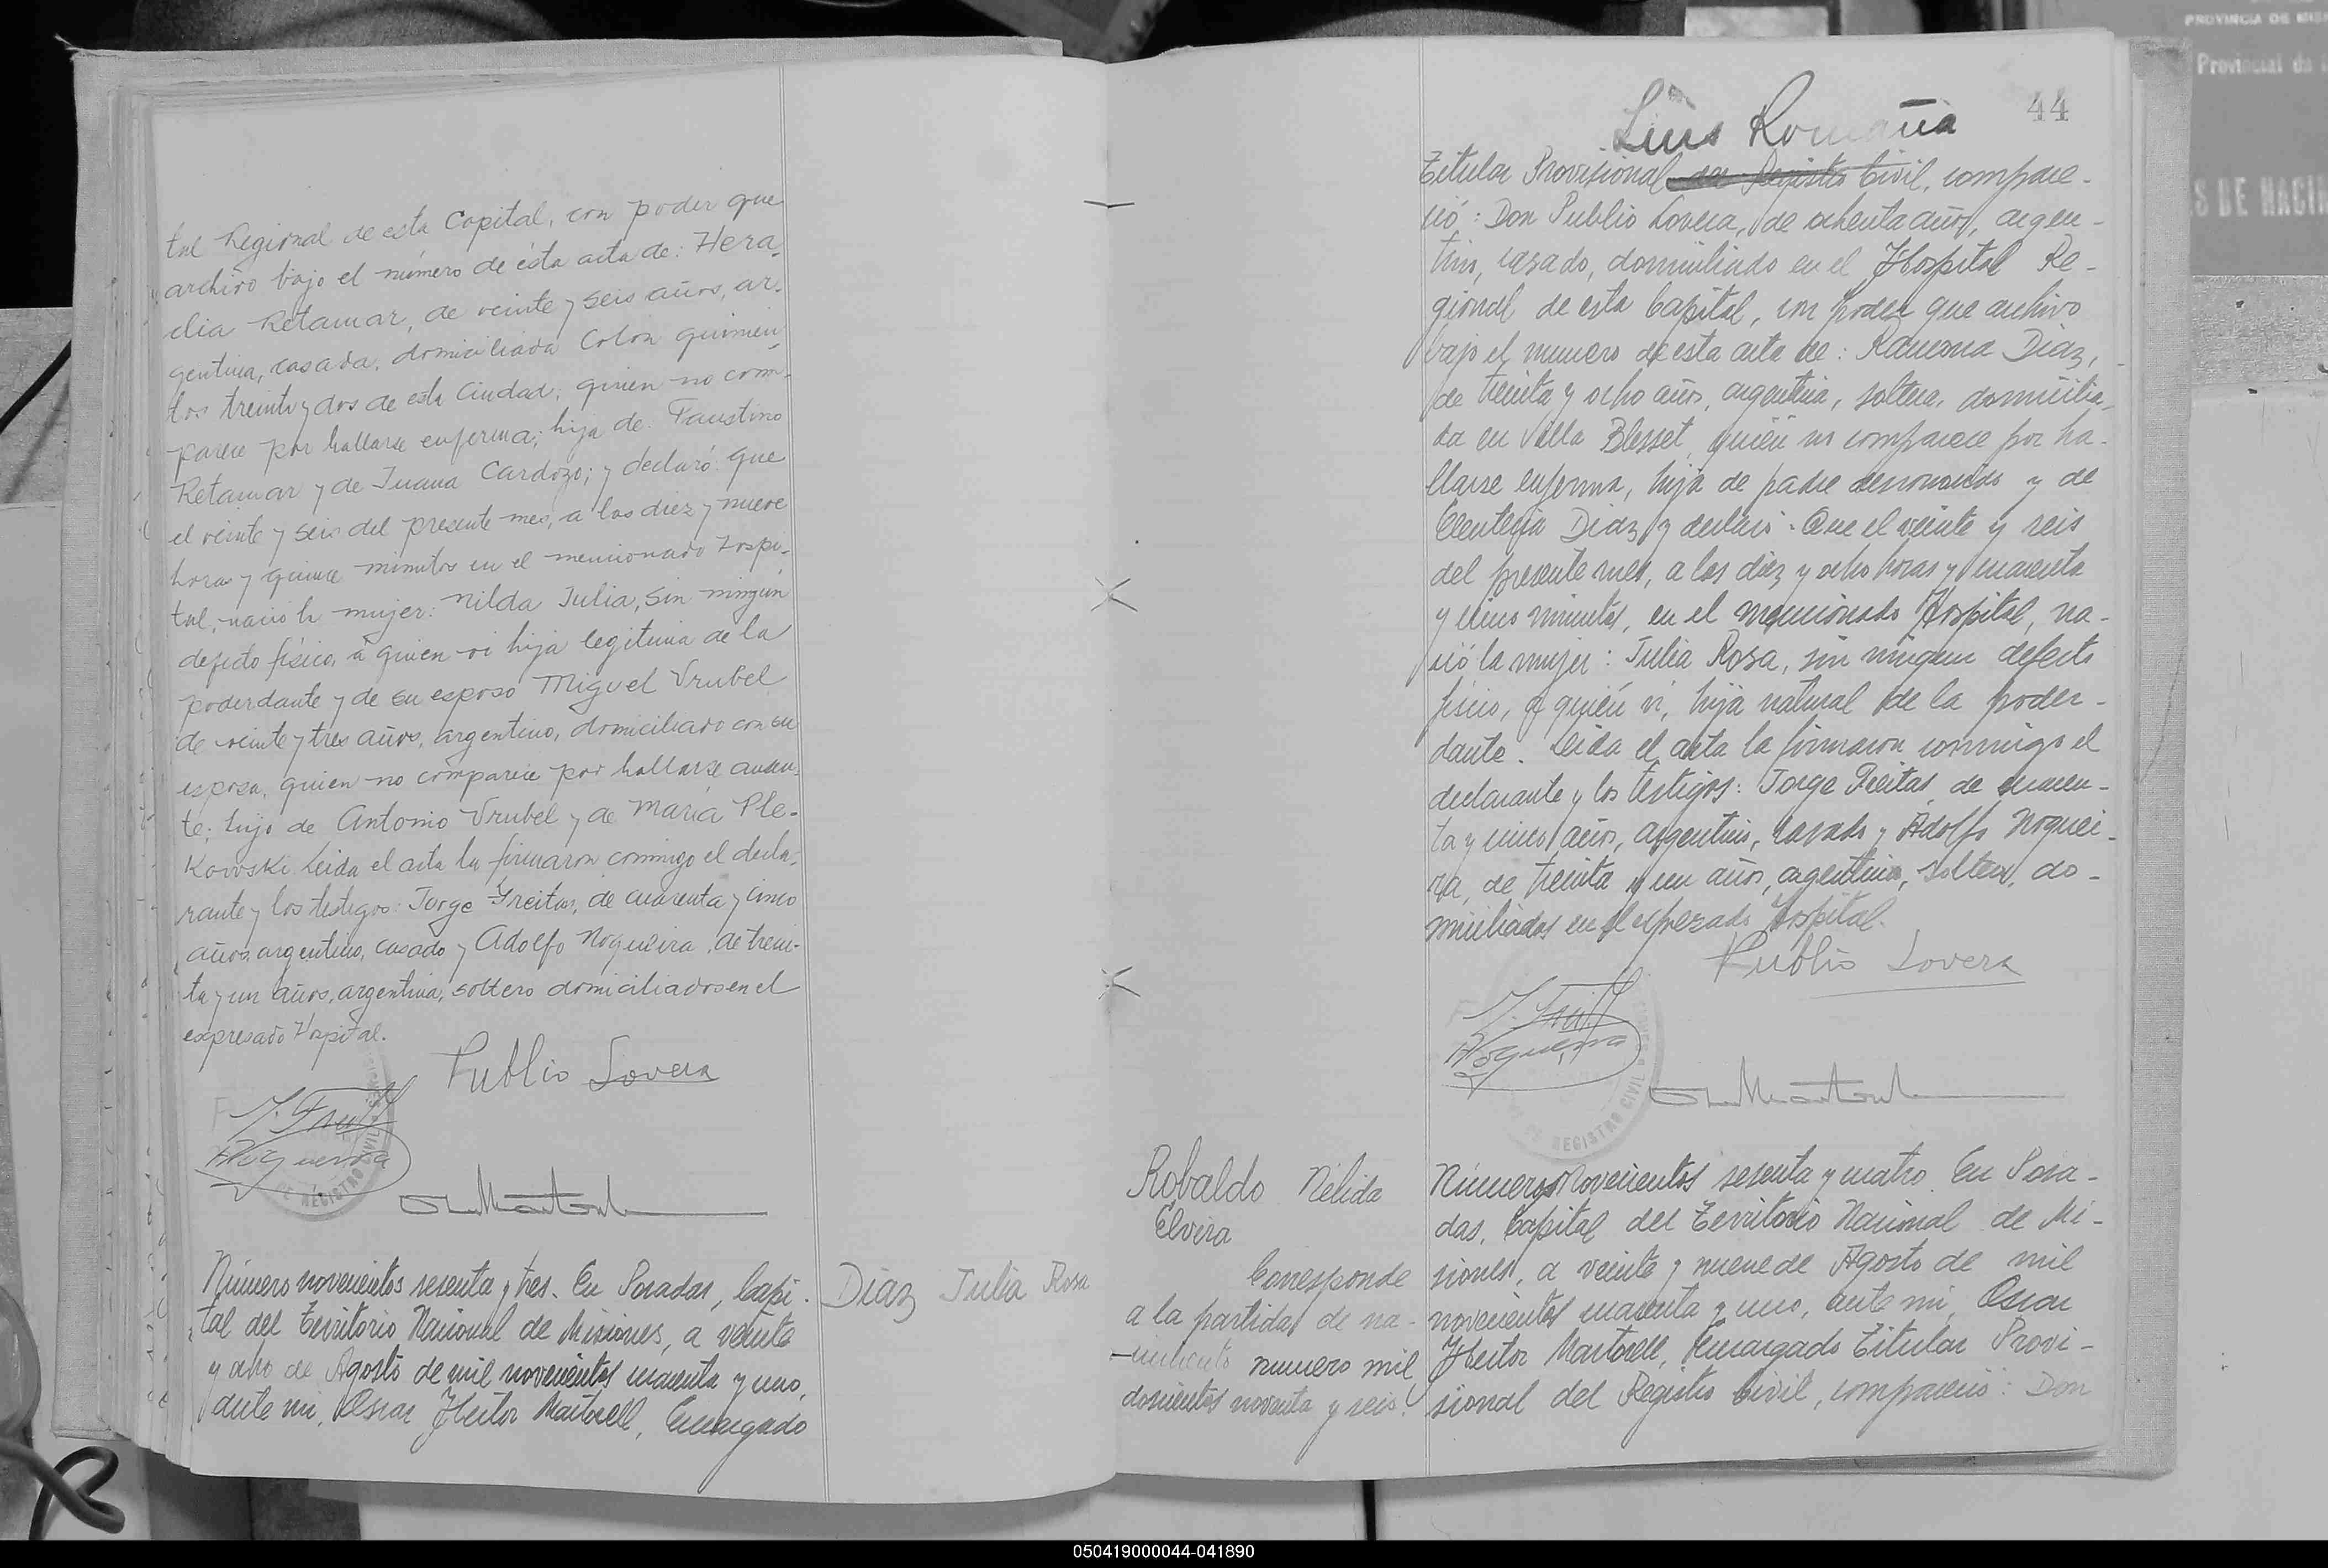 tal Regional de esta Capital, con poder que
archivo bajo el número de ésta acta de: Hera-
clia Retamar, de veinte y seis años, ar-
gentina, casada, domiciliada Colon quinien-
tos treinta y dos de esta Ciudad; quien no com-
parece por hallarse enferma; hija de Faustino
Retamar y de Juana Cardozo; y declaró que
el veinte y seis del presente mes, a las diez y nueve
horas y quince minutos en el mencionado Hospi-
tal, nació la mujer: Nilda Julia, sin ningún
defecto físico, a quien vi hija legitima de la
poderdante y de su esposo Miguel Vrubel
de veinte y tres años, argentino, domiciliado con su
esposa, quien no comparece por hallarse ausen-
te; hijo de Antonio Vrubel y de María Ple-
Kowski. Leida el acta la firmaron conmigo el decla-
rante y los testigos: Jorge Freitas, de cuarenta y cinco
años, argentino, casado y Adolfo Nogueira, de trein-
ta y un años, argentina, soltero domiciliados en el
expresado Hospital.
Publio Lovera
J. Freit
ANogueira
DE REGISTRO CIVIL
Número novecientos sesenta y tres. En Posadas, Capi-
tal del Territorio Nacional de Misiones, a veinte
y ocho de Agosto de mil novecientos cuarenta y uno,
ante mi, Oscar Hector Martorell, Encargado
Díaz Julia Rosa
Luis Romaña
44
Titular Provisional del Registro Civil, compare-
ció: Don Publio Lovera, de ochenta años, argen-
tino, casado, domiciliado en el Hospital Re-
gional de esta Capital, con poder que archivo
bajo el numero de esta acta de: Ramona Diaz,
de treinta y ocho años, argentina, soltera, domicilia-
da en Villa Blosset, quién no comparece por ha-
llarse enferma, hija de padre desconocido y de
Eleuteria Diaz y declaró: Que el veinte y seis
del presente mes, a las diez y ocho horas y cuarenta
y cinco minutos, en el mencionado Hospital, na-
ció la mujer: Julia Rosa, sin ningun defecto
físico, a quién vi, hija natural de la poder-
dante. Leida el acta la firmaron conmigo el
declarante y los testigos: Jorge Freitas, de cuaren-
ta y cinco años, argentino, casado y Adolfo Noguei-
ra, de treinta y un años, argentino, soltero, do-
miciliados en el expresado Hospital.
Publio Lovera
J. Freit
ANogueira
DE REGISTRO CIVIL
Robaldo Nélida
Elvira
Corresponde
a la partida de na-
cimiento numero mil
doscientos noventa y seis.
Número Novecientos sesenta y cuatro. En Posa-
das, Capital del Territorio Nacional de Mi-
siones, a veinte y nueve de Agosto de mil
novecientos cuarenta y uno, ante mi, Oscar
Hector Martorell, Encargado Titular Provi-
sional del Registro Civil, compareció: Don
PROVINCIA DE MIS
Provincial de
S DE NACIM
050419000044-041890